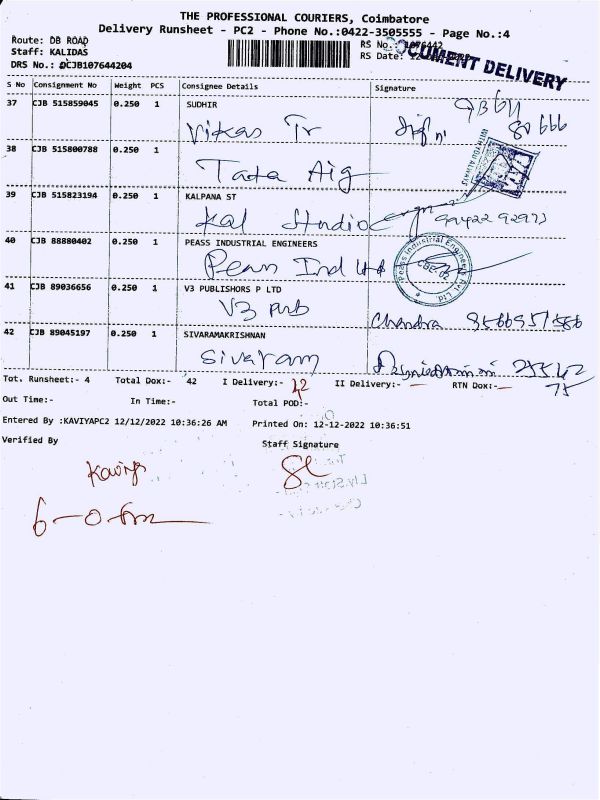 THE PROFESSIONAL COURIERS, Coimbatore
Delivery Runsheet - PC2 - Phone No.:0422-3505555 - Page No.:4
Route: DB ROAD
RS No.: 1076442
Staff: KALIDAS
RS Date:
DRS No.: DCJB107644204
DOCUMENT DELIVERY
S No Consignment No Weight PCS Consignee Details Signature
37 CJB 515859045 0.250 1 SUDHIR
Vikas Tr
80666
38 CJB 515800788 0.250 1
Tata Aig
39 CJB 515823194 0.250 1 KALPANA ST
Kal Studio
99422 92973
40 CJB 88880402 0.250 1 PEASS INDUSTRIAL ENGINEERS
Peass Ind Ltd
Peass Industrial Engineers Pvt. Ltd.
CBE-02
41 CJB 89036656 0.250 1 V3 PUBLISHORS P LTD
V3 Pub
Chandra
42 CJB 89045197 0.250 1 SIVARAMAKRISHNAN
Sivaram
75
Tot. Runsheet:- 4 Total Dox:- 42 I Delivery:- 42 II Delivery:- — RTN Dox:- —
Out Time:- In Time:- Total POD:-
Entered By :KAVIYAPC2 12/12/2022 10:36:26 AM Printed On: 12-12-2022 10:36:51
Verified By Staff Signature
Kaviya